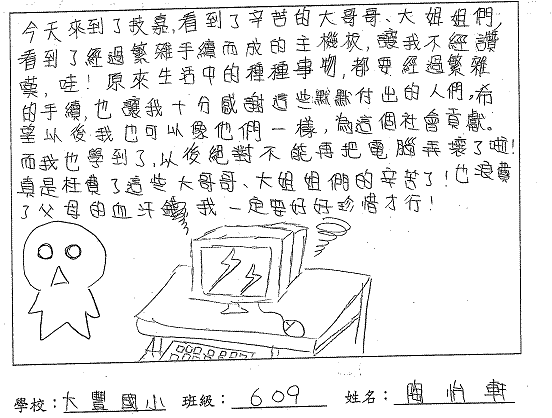 今天來到了技嘉,看到了辛苦的大哥哥、大姐姐們,
看到了經過繁雜手續而成的主機板,讓我不經讚
嘆,哇!原來生活中的種種事物,都要經過繁雜
的手續,也讓我十分感謝這些默默付出的人們,希
望以後我也可以像他們一樣,為這個社會貢獻。
而我也學到了,以後絕對不能再把電腦弄壞了啦!
真是枉費了這些大哥哥、大姐姐們的辛苦了!也浪費
了父母的血汗錢,我一定要好好珍惜才行!
學校:大豐國小 班級:609 姓名:陶怡軒